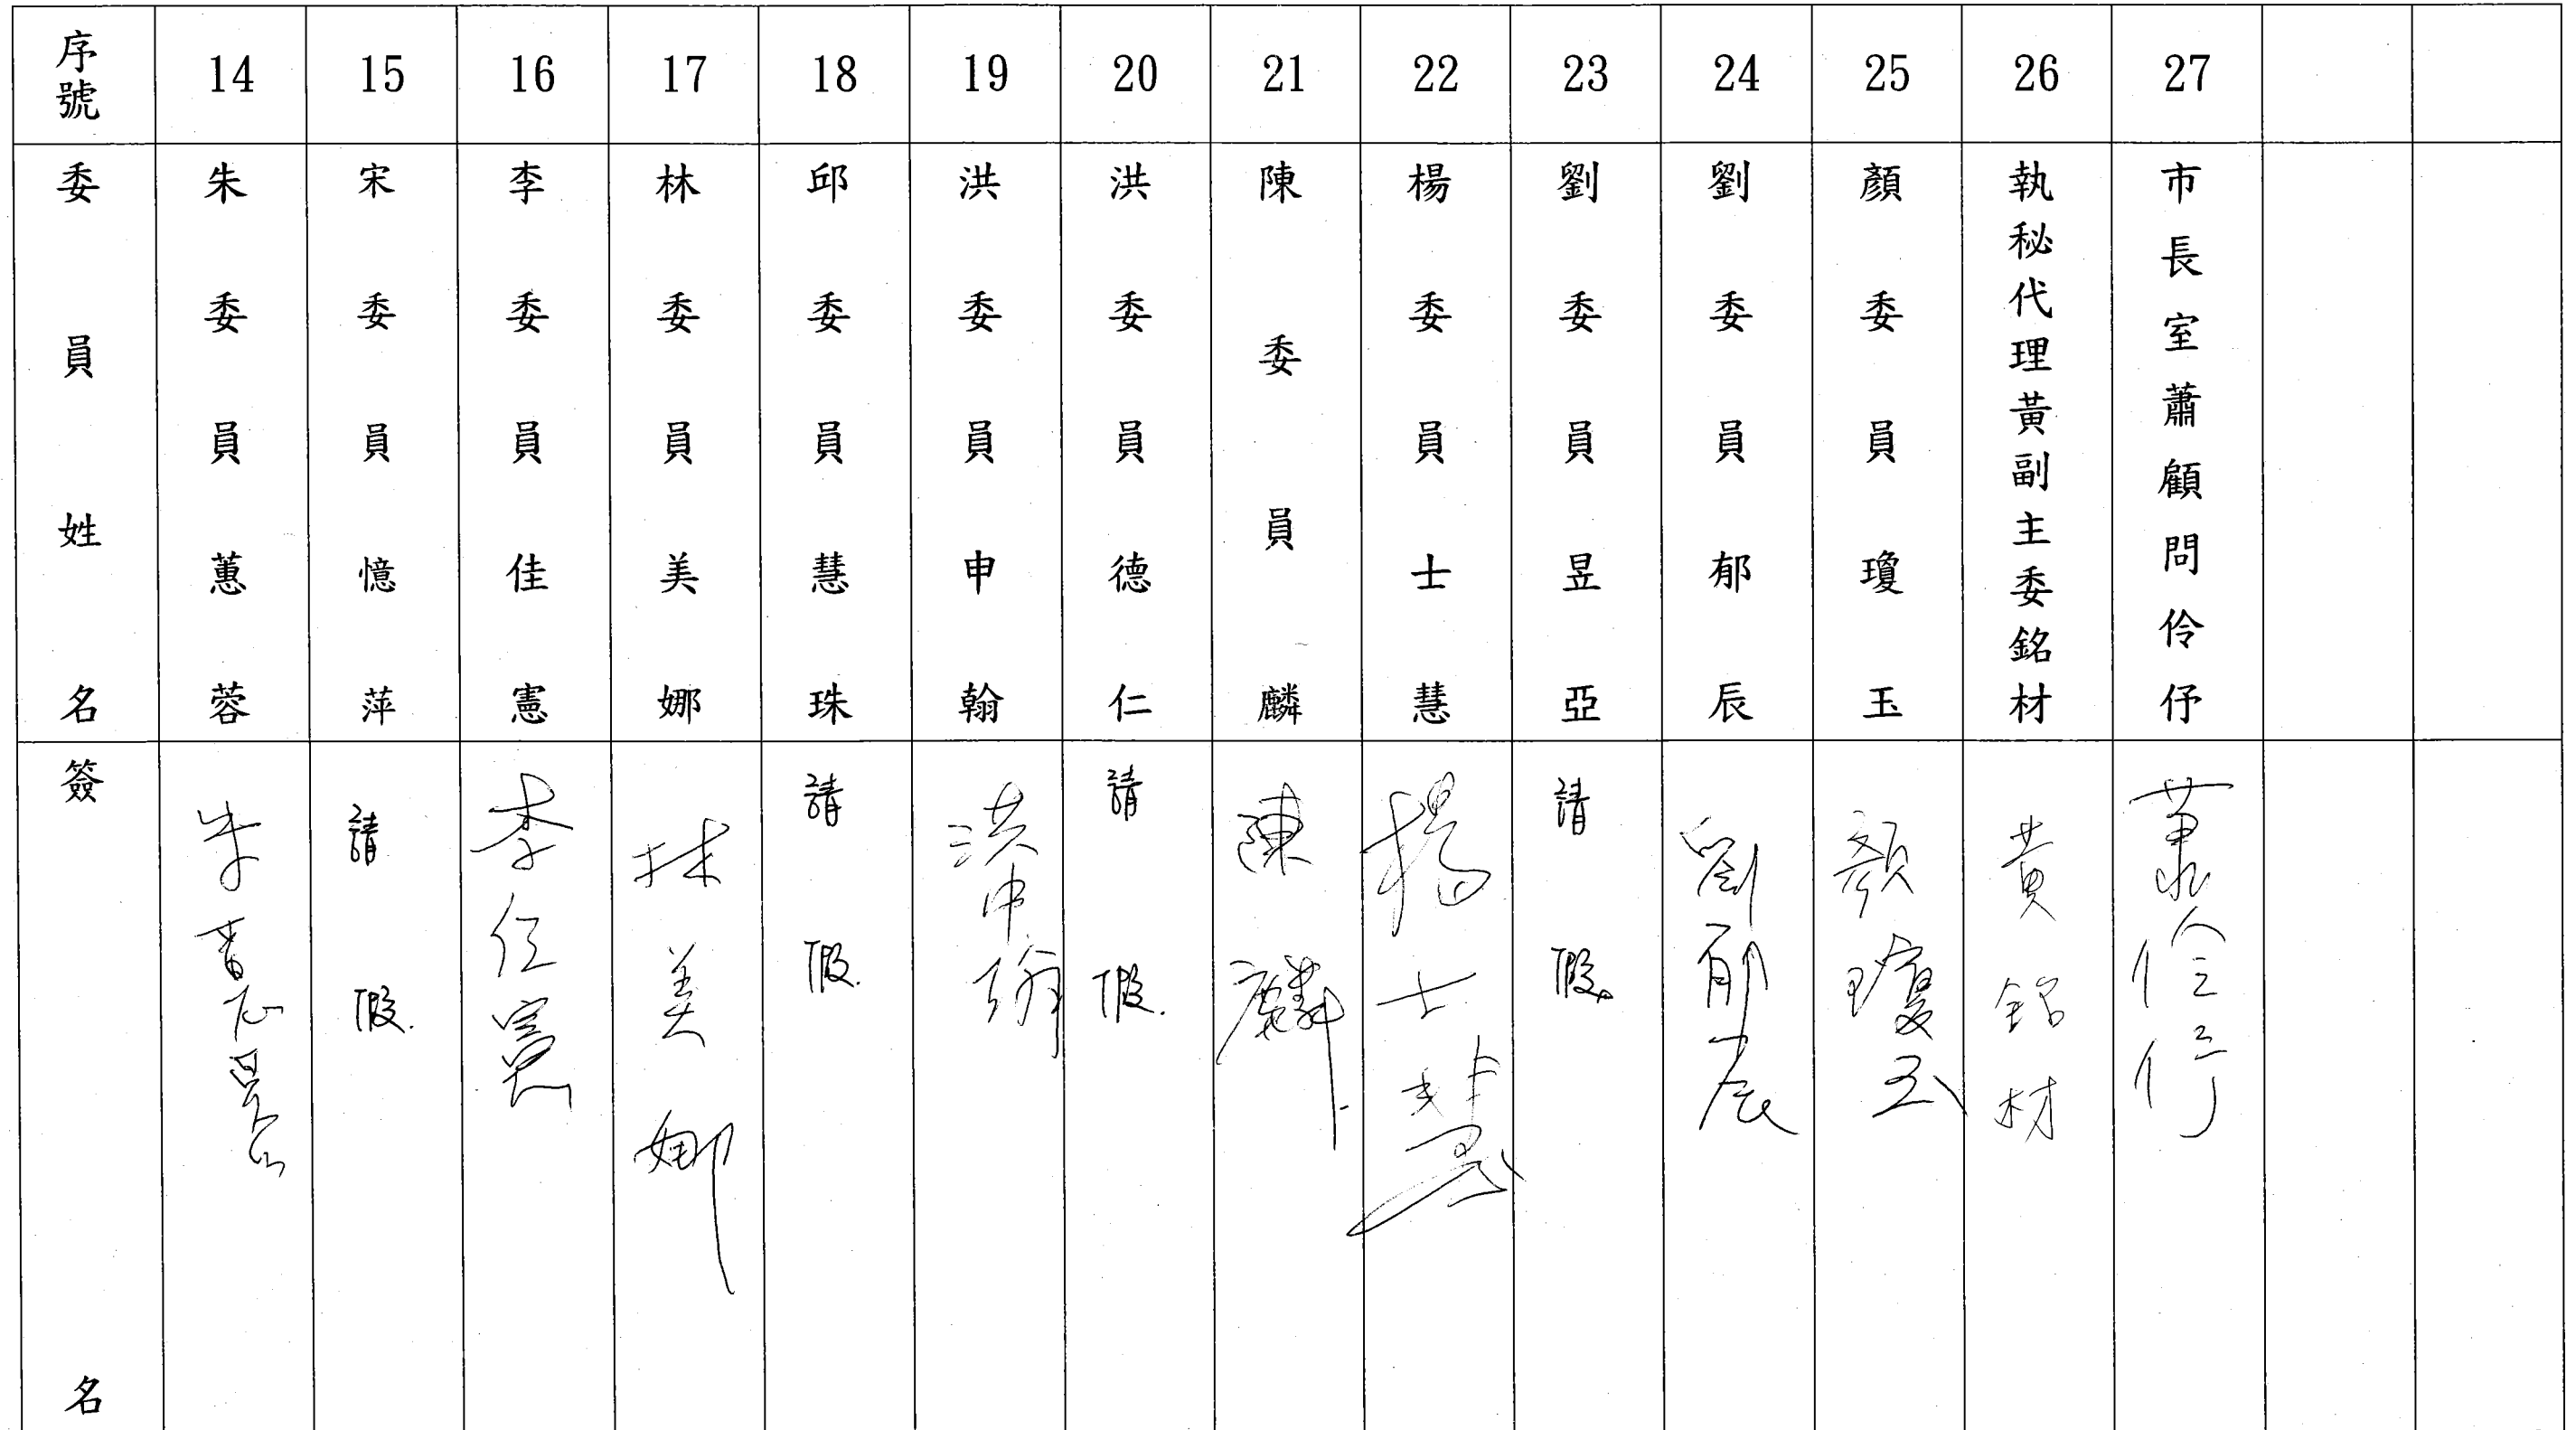 序號 14 15 16 17 18 19 20 21 22 23 24 25 26 27
委員姓名
朱委員蕙蓉
宋委員憶萍
李委員佳憲
林委員美娜
邱委員慧珠
洪委員申翰
洪委員德仁
陳委員麟
楊委員士慧
劉委員昱亞
劉委員郁辰
顏委員瓊玉
執秘代理黃副主委銘材
市長室蕭顧問伶伃
簽名
請假
李
林美娜
請假
洪申翰
請假
陳麟
楊士慧
請假
劉郁辰
顏瓊玉
黃銘材